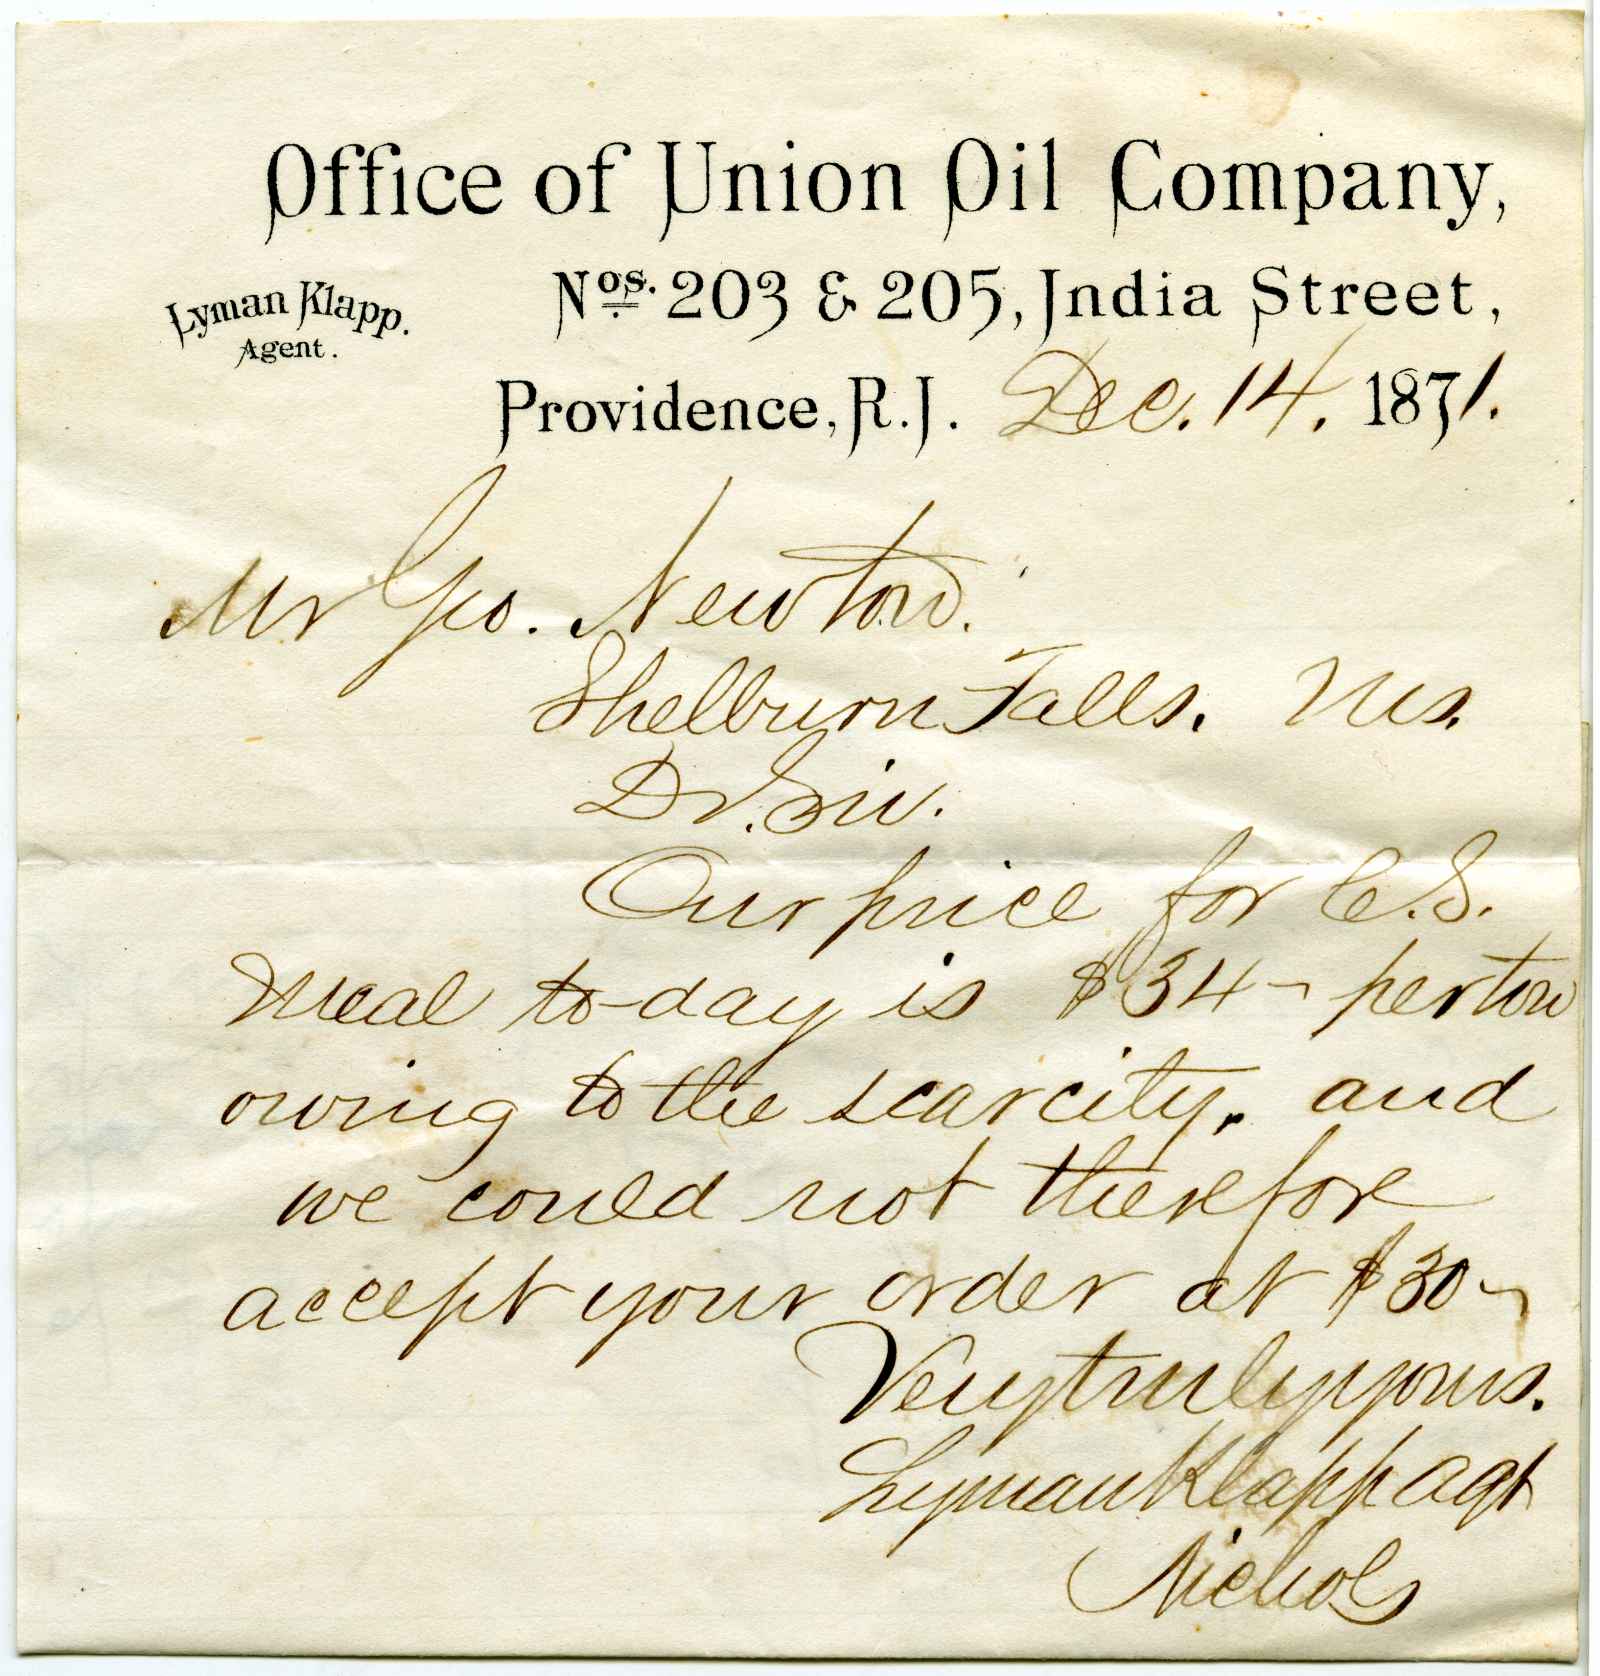 Office of Union Oil Company,
Lyman Klapp.
Agent.
Nos. 203 & 205, India Street,
Providence, R.I. Dec. 14. 1871.
Mr Geo. Newton.
Shelburn Falls. Ms.
Dr. Sir.
Our price for C.S.
Meal to-day is $34- per ton
owing to the scarcity, and
we could not therefore
accept your order at $30-
Very truly yours.
Lyman Klapp Agt
Nichols